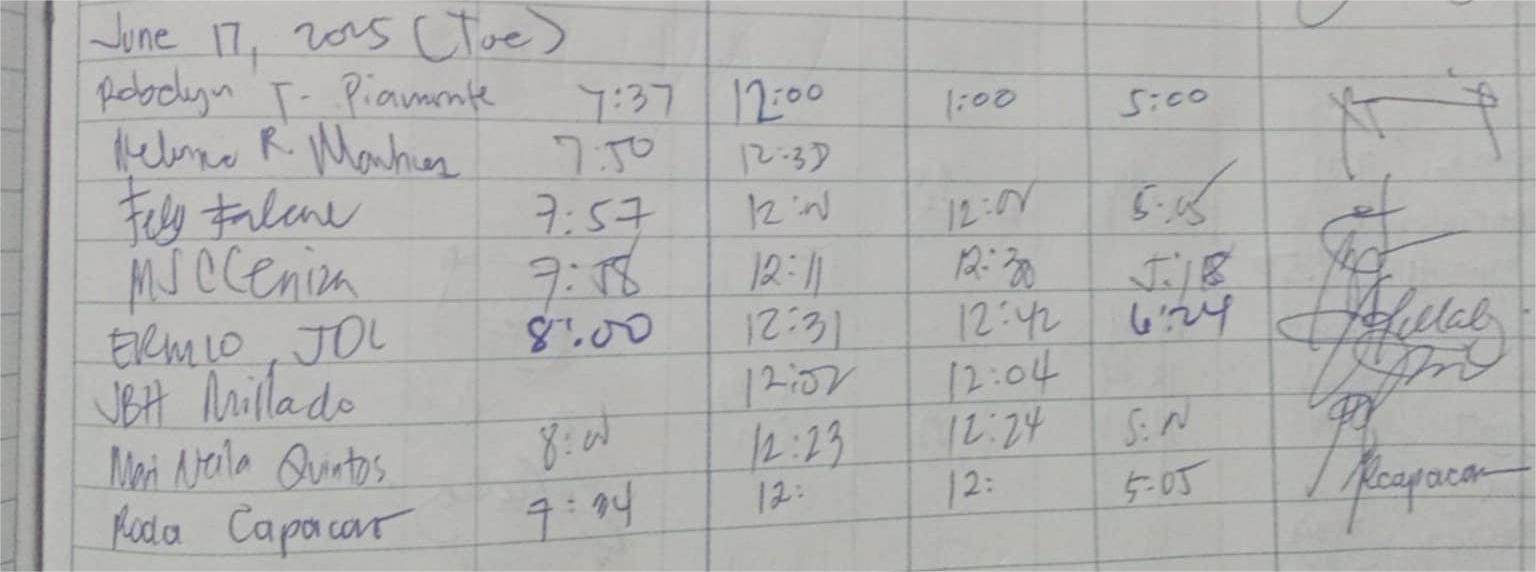 June 17, 2025 (Tue)
Robelyn T. Piamonte 7:37 12:00 1:00 5:00
R. 7:50 12:30
Fely 7:57 12:00 12:01 5:05
MSCCeniza 7:58 12:11 12:30 5:18
ERMIO, JOL 8:00 12:31 12:42 6:24
JBH Millado 12:02 12:04
Mari Neila Quintos 8:00 12:23 12:24 5:00
Roda Capacar 7:34 12: 12: 5:05 Rcapacar